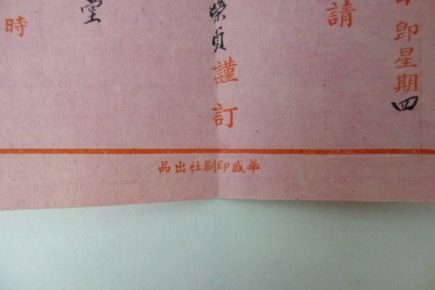 即星期四
請
榮貞謹訂
堂
時
華盛印刷社出品